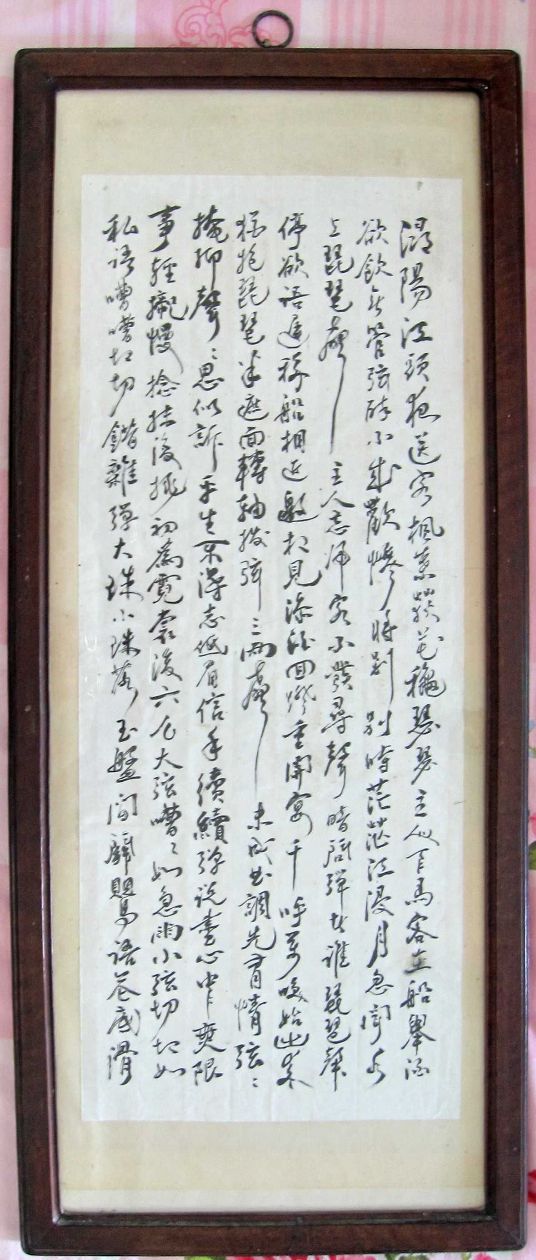 潯陽江頭夜送客楓葉荻花穐瑟瑟主人下馬客在船舉酒
欲飲無管弦醉不成歡慘將別別時茫茫江浸月忽聞水
上琵琶聲主人忘歸客不發尋聲暗問彈者誰琵琶聲
停欲語遲移船相近邀相見添酒回燈重開宴千呼萬喚始出來
猶抱琵琶半遮面轉軸撥弦三兩聲未成曲調先有情弦〻
掩抑聲〻思似訴平生不得志低眉信手續續彈說盡心中無限
事輕攏慢捻抹復挑初為霓裳後六幺大弦嘈〻如急雨小弦切切如
私語嘈嘈切切錯雜彈大珠小珠落玉盤間關鶯語花底滑